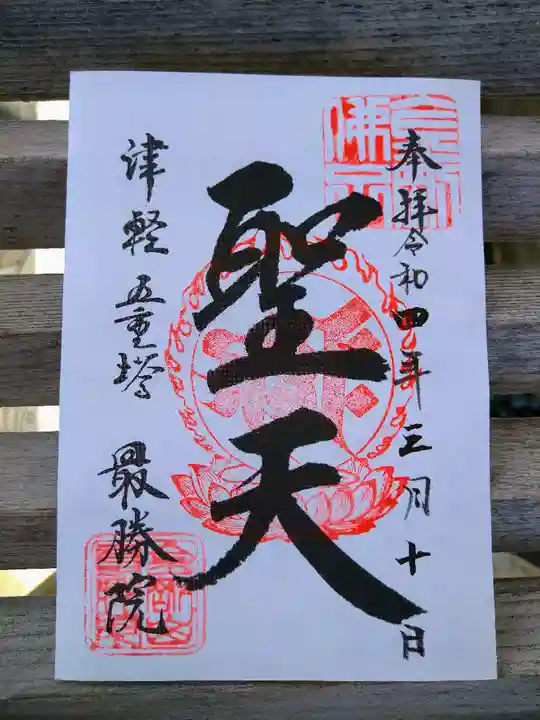 奉拝 令和四年三月十日
聖天
津軽五重塔 最勝院